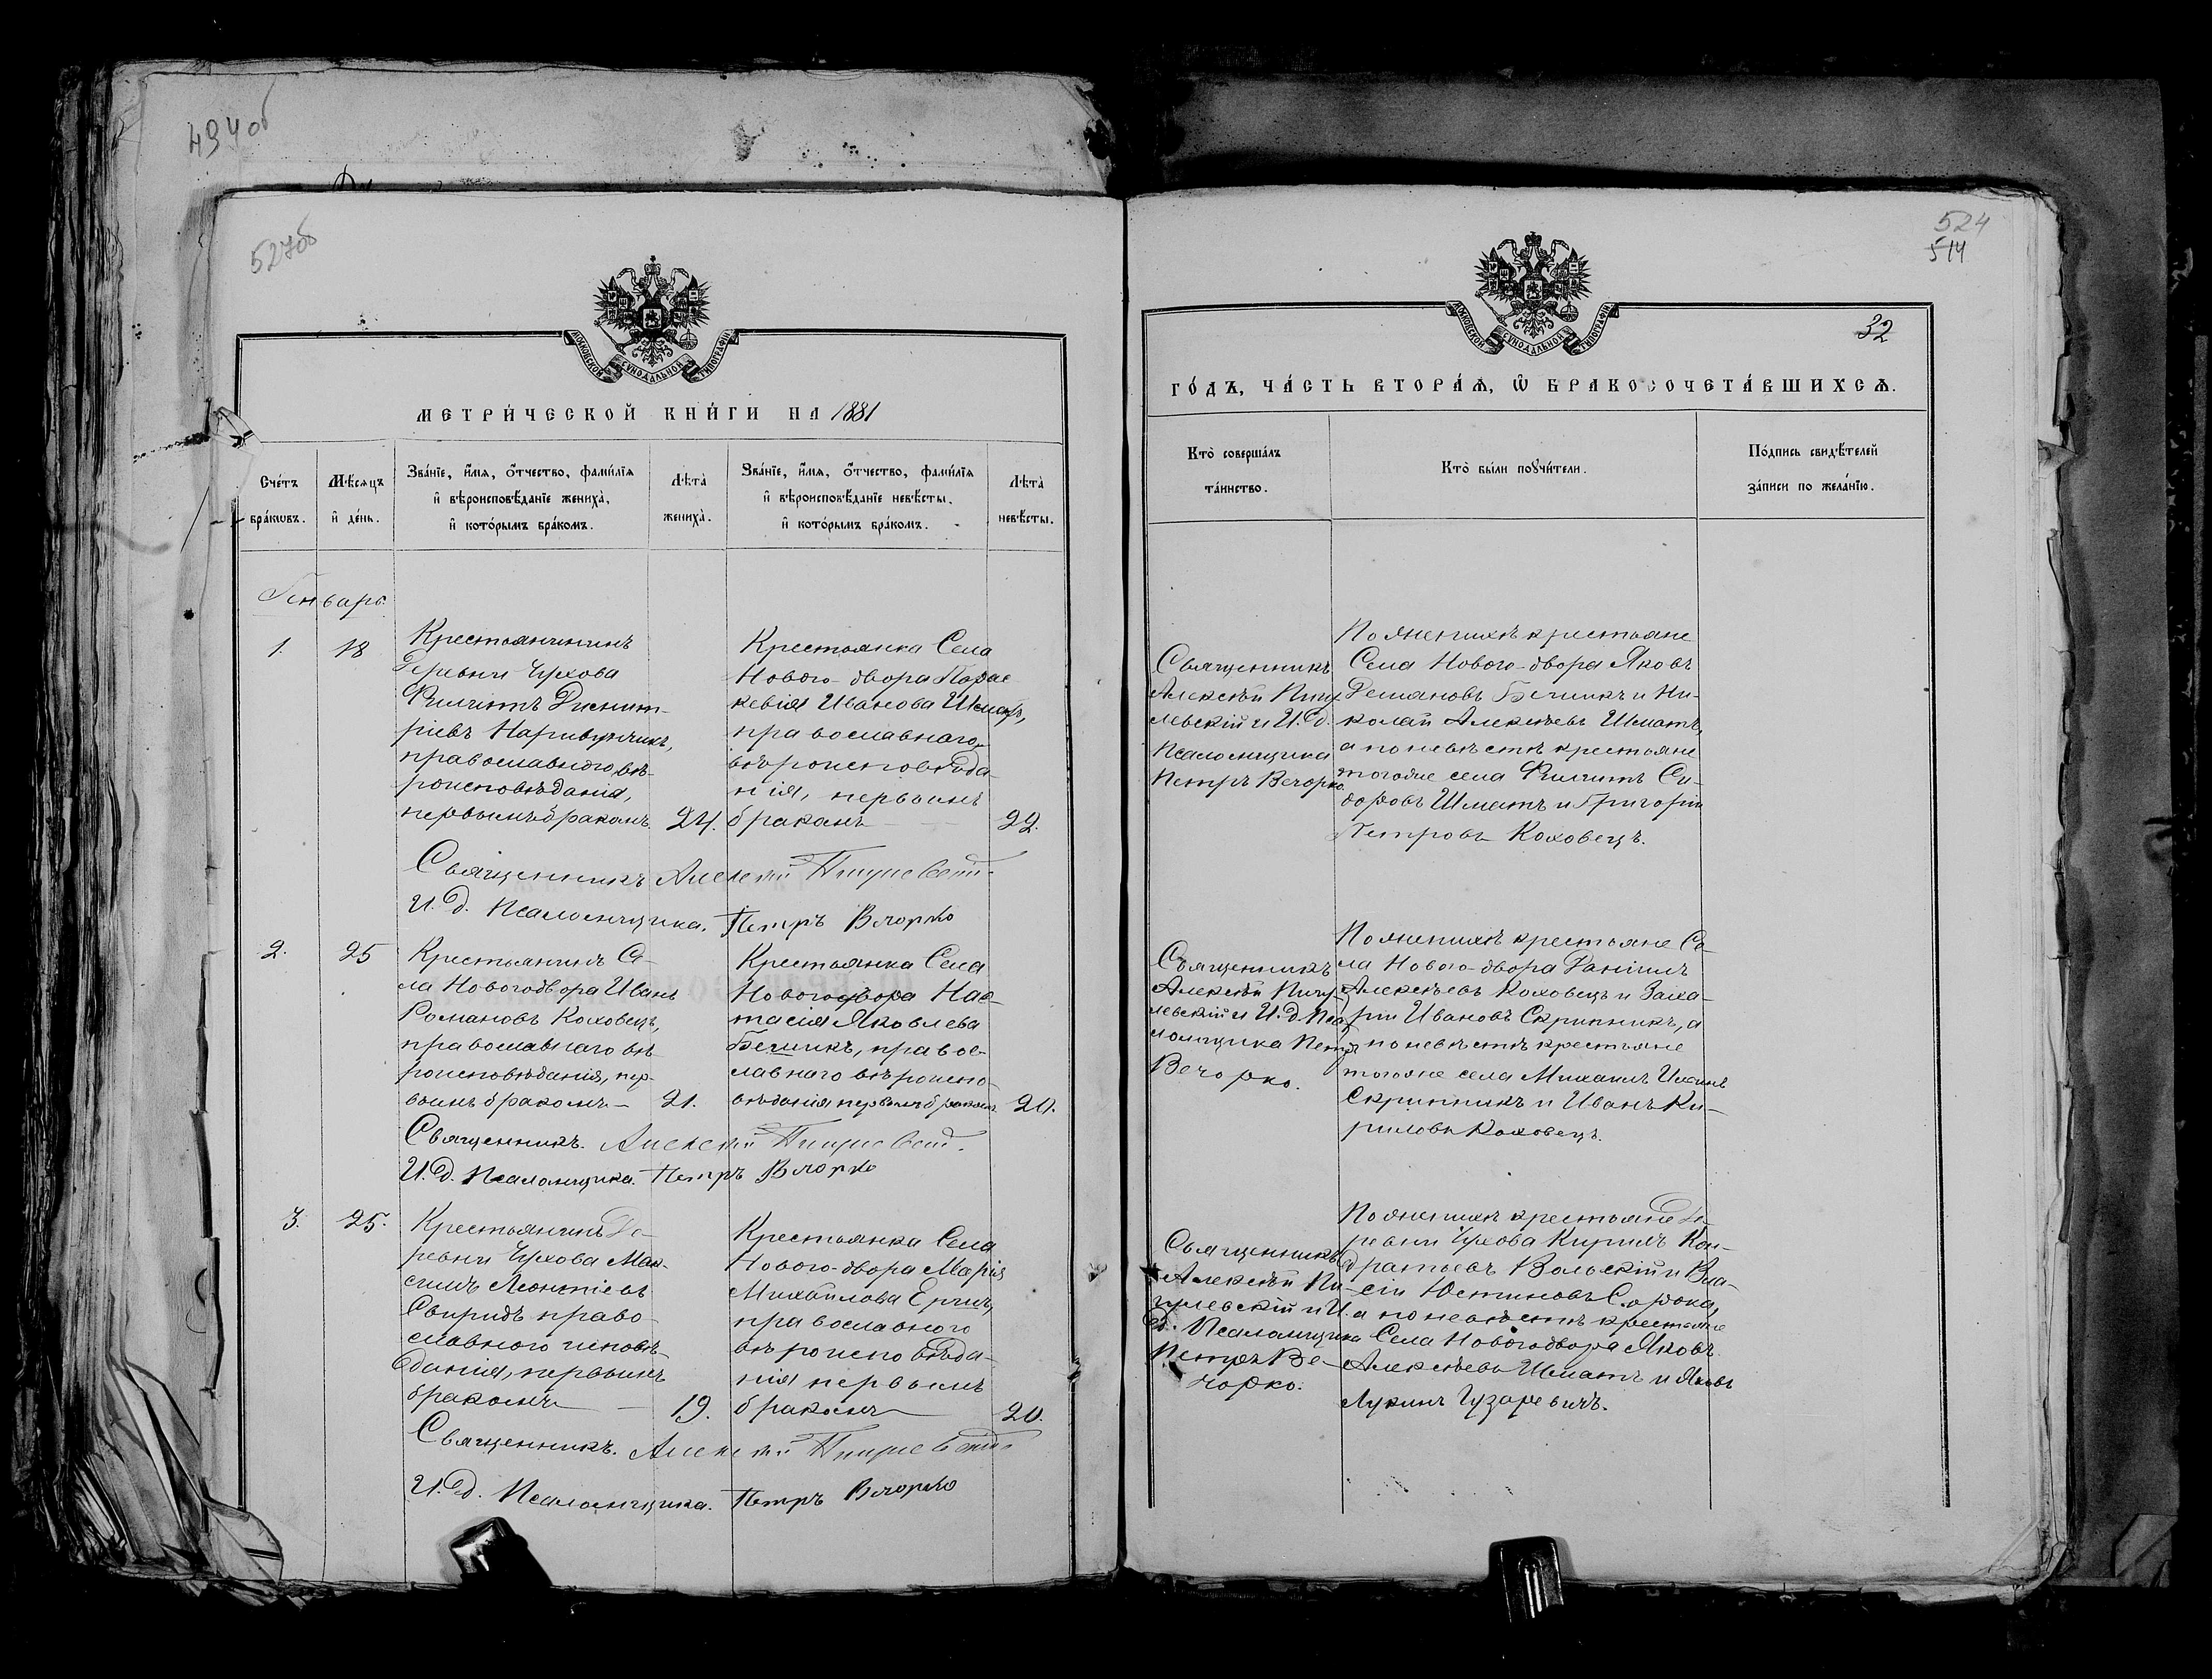 494об
527об
524
514
32
МОСКОВСКОЙ СѴНОДАЛЬНОЙ ТИПОГРАФІИ
МЕТРИ́ЧЕСКОЙ КНИ́ГИ НА 1881
Сче́тъ бра́кѡвъ.
Мѣ́сѧцъ и҆ де́нь.
Зва́нїе, и҆́мѧ, ѻ҆́тчество, фами́лїѧ
и҆ вѣроисповѣ́данїе жениха̀,
и҆ кото́рымъ бра́комъ.
Лѣта̀ жениха̀.
Зва́нїе, и҆́мѧ, ѻ҆́тчество, фами́лїѧ
и҆ вѣроисповѣ́данїе невѣ́сты.
и҆ кото́рымъ бра́комъ.
Лѣта̀ невѣ́сты.
Генварь
1.
18
Крестьянинъ
Деревни Чухова
Филиппъ Димит-
ріевъ
православнаго вѣ-
роисповѣданія,
первымъ бракомъ.
24.
Крестьянка Села
Нового-двора Парас
кевія Иванова Шматъ,
православнаго
вѣроисповѣда-
нія, первымъ
бракомъ
22.
Священникъ Алексѣй Пигулевскій
И. д. Псаломщика. Петръ Вечорко
2.
25
Крестьянинъ Се-
ла Новогодвора Иванъ
Романовъ Коховецъ,
православнаго вѣ-
роисповѣданія, пер-
вымъ бракомъ
21.
Крестьянка Села
Новогодвора Нас-
тасія Яковлева
Бечикъ, правос-
лавнаго вѣроиспо-
вѣданія первымъ бракомъ
20.
Священникъ. Алексѣй Пигулевскій.
И. д. Псаломщика. Петръ Вечорко
3.
25.
Крестьянинъ Де-
ревни Чухова Мак-
симъ Леонтіевъ
Свиридъ право-
славного исповѣ-
данія, первымъ
бракомъ
19.
Крестьянка Села
Нового-двора Марія
Михайлова
православного
вѣроисповѣда-
нія первымъ
бракомъ
20.
Священникъ. Алексѣй Пигулевскій
И. д. Псаломщика. Петръ Вечорко
ГО́ДЪ, ЧА́СТЬ ВТОРА́Ѧ, Ѡ҆ БРАКОСОЧЕТА́ВШИХСѦ.
Кто̀ соверша́лъ
та́инство.
Кто̀ бы́ли порꙋчи́тели.
По́дпись свидѣ́телей
за́писи по жела́нїю.
Священникъ
Алексѣй Пигу-
левскій и И. д.
Псаломщика
Петръ Вечорко
По женихѣ крестьяне
Села Нового-двора Яковъ
Демяновъ Бечикъ и Ни-
колай Алексѣевъ Шматъ,
а по невѣстѣ крестьяне
тогоже села Филиппъ Си-
доровъ Шматъ и Григорій
Петровъ Коховецъ.
Священникъ
Алексѣй Пигу-
левскій и И. д. Пса-
ломщика Петръ
Вечорко.
По женихѣ крестьяне Се-
ла Нового-двора Даніилъ
Алексѣевъ Коховецъ и Заха-
рій Ивановъ Скрипникъ, а
по невѣстѣ крестьяне
тогоже села Михаилъ Илинъ
Скрипникъ и Иванъ Ки-
риловъ Коховецъ.
Священникъ
Алексѣй Пи-
гулевскій и И.
д. Псаломщика
Петръ Ве-
чорко.
По женихѣ крестьяне Де-
ревни Чухова Кирилъ Кон-
дратьевъ Вольскій и Вла-
сій Юстиновъ Сорока,
а по невѣстѣ крестьяне
Села Новогодвора Яковъ
Алексѣевъ Шматъ и Яковъ
Лукинъ Гузаревичъ.